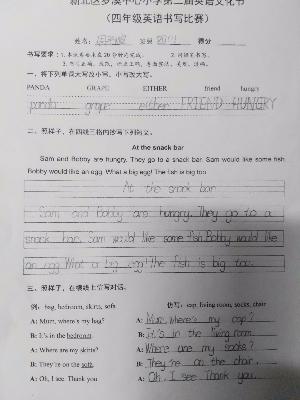 新北区罗溪中心小学第二届英语文化节
(四年级英语书写比赛)
姓名: 班级 得分
书写要求:
一、将下列单词大写改小写,小写改大写。
PANDA GRAPE EITHER friend hungry
panda grape either FRIEND HUNGRY
二、照样子,在四线三格内抄写下列短文。
At the snack bar
Sam and Bobby are hungry. They go to a snack bar. Sam would like some fish.
Bobby would like an egg. What a big egg! The fish is big too.
At the snack bar
Sam and Bobby are hungry. They go to a
snack bar. Sam would like some fish. Bobby would like
an egg. What a big egg! The fish is big too.
三、照样子,在横线上仿写对话。
例: bag, bedroom, skirts, sofa 仿写: cap, living room, socks, chair
A: Mum, where's my bag? A: Mum, where's my cap?
B: It's in the bedroom. B: It's in the living room.
A: Where are my skirts? A: Where are my socks?
B: They're on the sofa. B: They're on the chair.
A: Oh, I see. Thank you A: Oh, I see. Thank you.